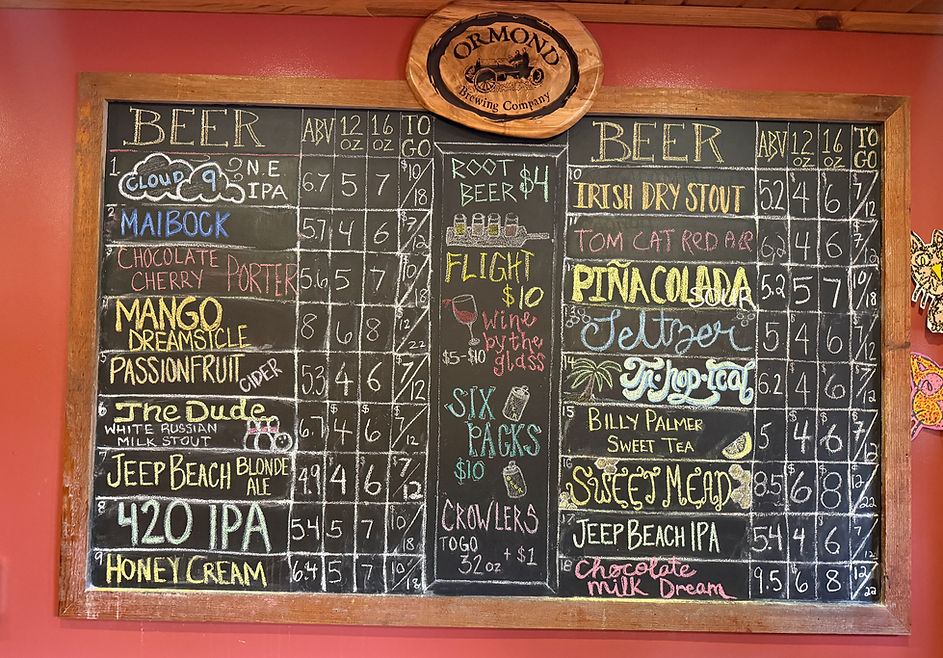 ORMOND
Brewing Company
BEER ABV 12 OZ 16 OZ TO GO
1 CLOUD 9 N.E IPA 6.7 5 7 $10/18
2 MAIBOCK 5.7 4 6 $7/12
3 CHOCOLATE CHERRY PORTER 5.6 5 7 $10/18
MANGO DREAMSICLE 8 6 8 $12/22
5 PASSIONFRUIT CIDER 5.3 4 6 $7/12
6 The Dude 6.7 $4 $6 $7/12
WHITE RUSSIAN
MILK STOUT
7 JEEP BEACH BLONDE ALE 4.9 $4 $6 $7/12
8 420 IPA 5.4 5 7 10/18
9 HONEY CREAM 6.4 5 7 10/18
ROOT
BEER $4
FLIGHT
$10
wine
by the
glass
$5-$10
SIX
PACKS
$10
CROWLERS
TO GO
32oz + $1
BEER ABV 12 OZ 16 OZ TO GO
10 IRISH DRY STOUT 5.2 $4 $6 $7/12
11 TOM CAT RED ALE 6.2 4 6 $7/12
12 PIÑA COLADA SOUR 5.2 5 7 $10/18
13 Seltzer 5 4 6 $7/12
14 Tr-hop-ical 6.2 4 6 $7/12
15 BILLY PALMER 5 $4 $6 $7/12
SWEET TEA
16 SWEET MEAD 8.5 $6 $8 $12/22
17 JEEP BEACH IPA 5.4 $4 $6 $7/12
18 Chocolate 9.5 $6 8 $12/22
milk Dream